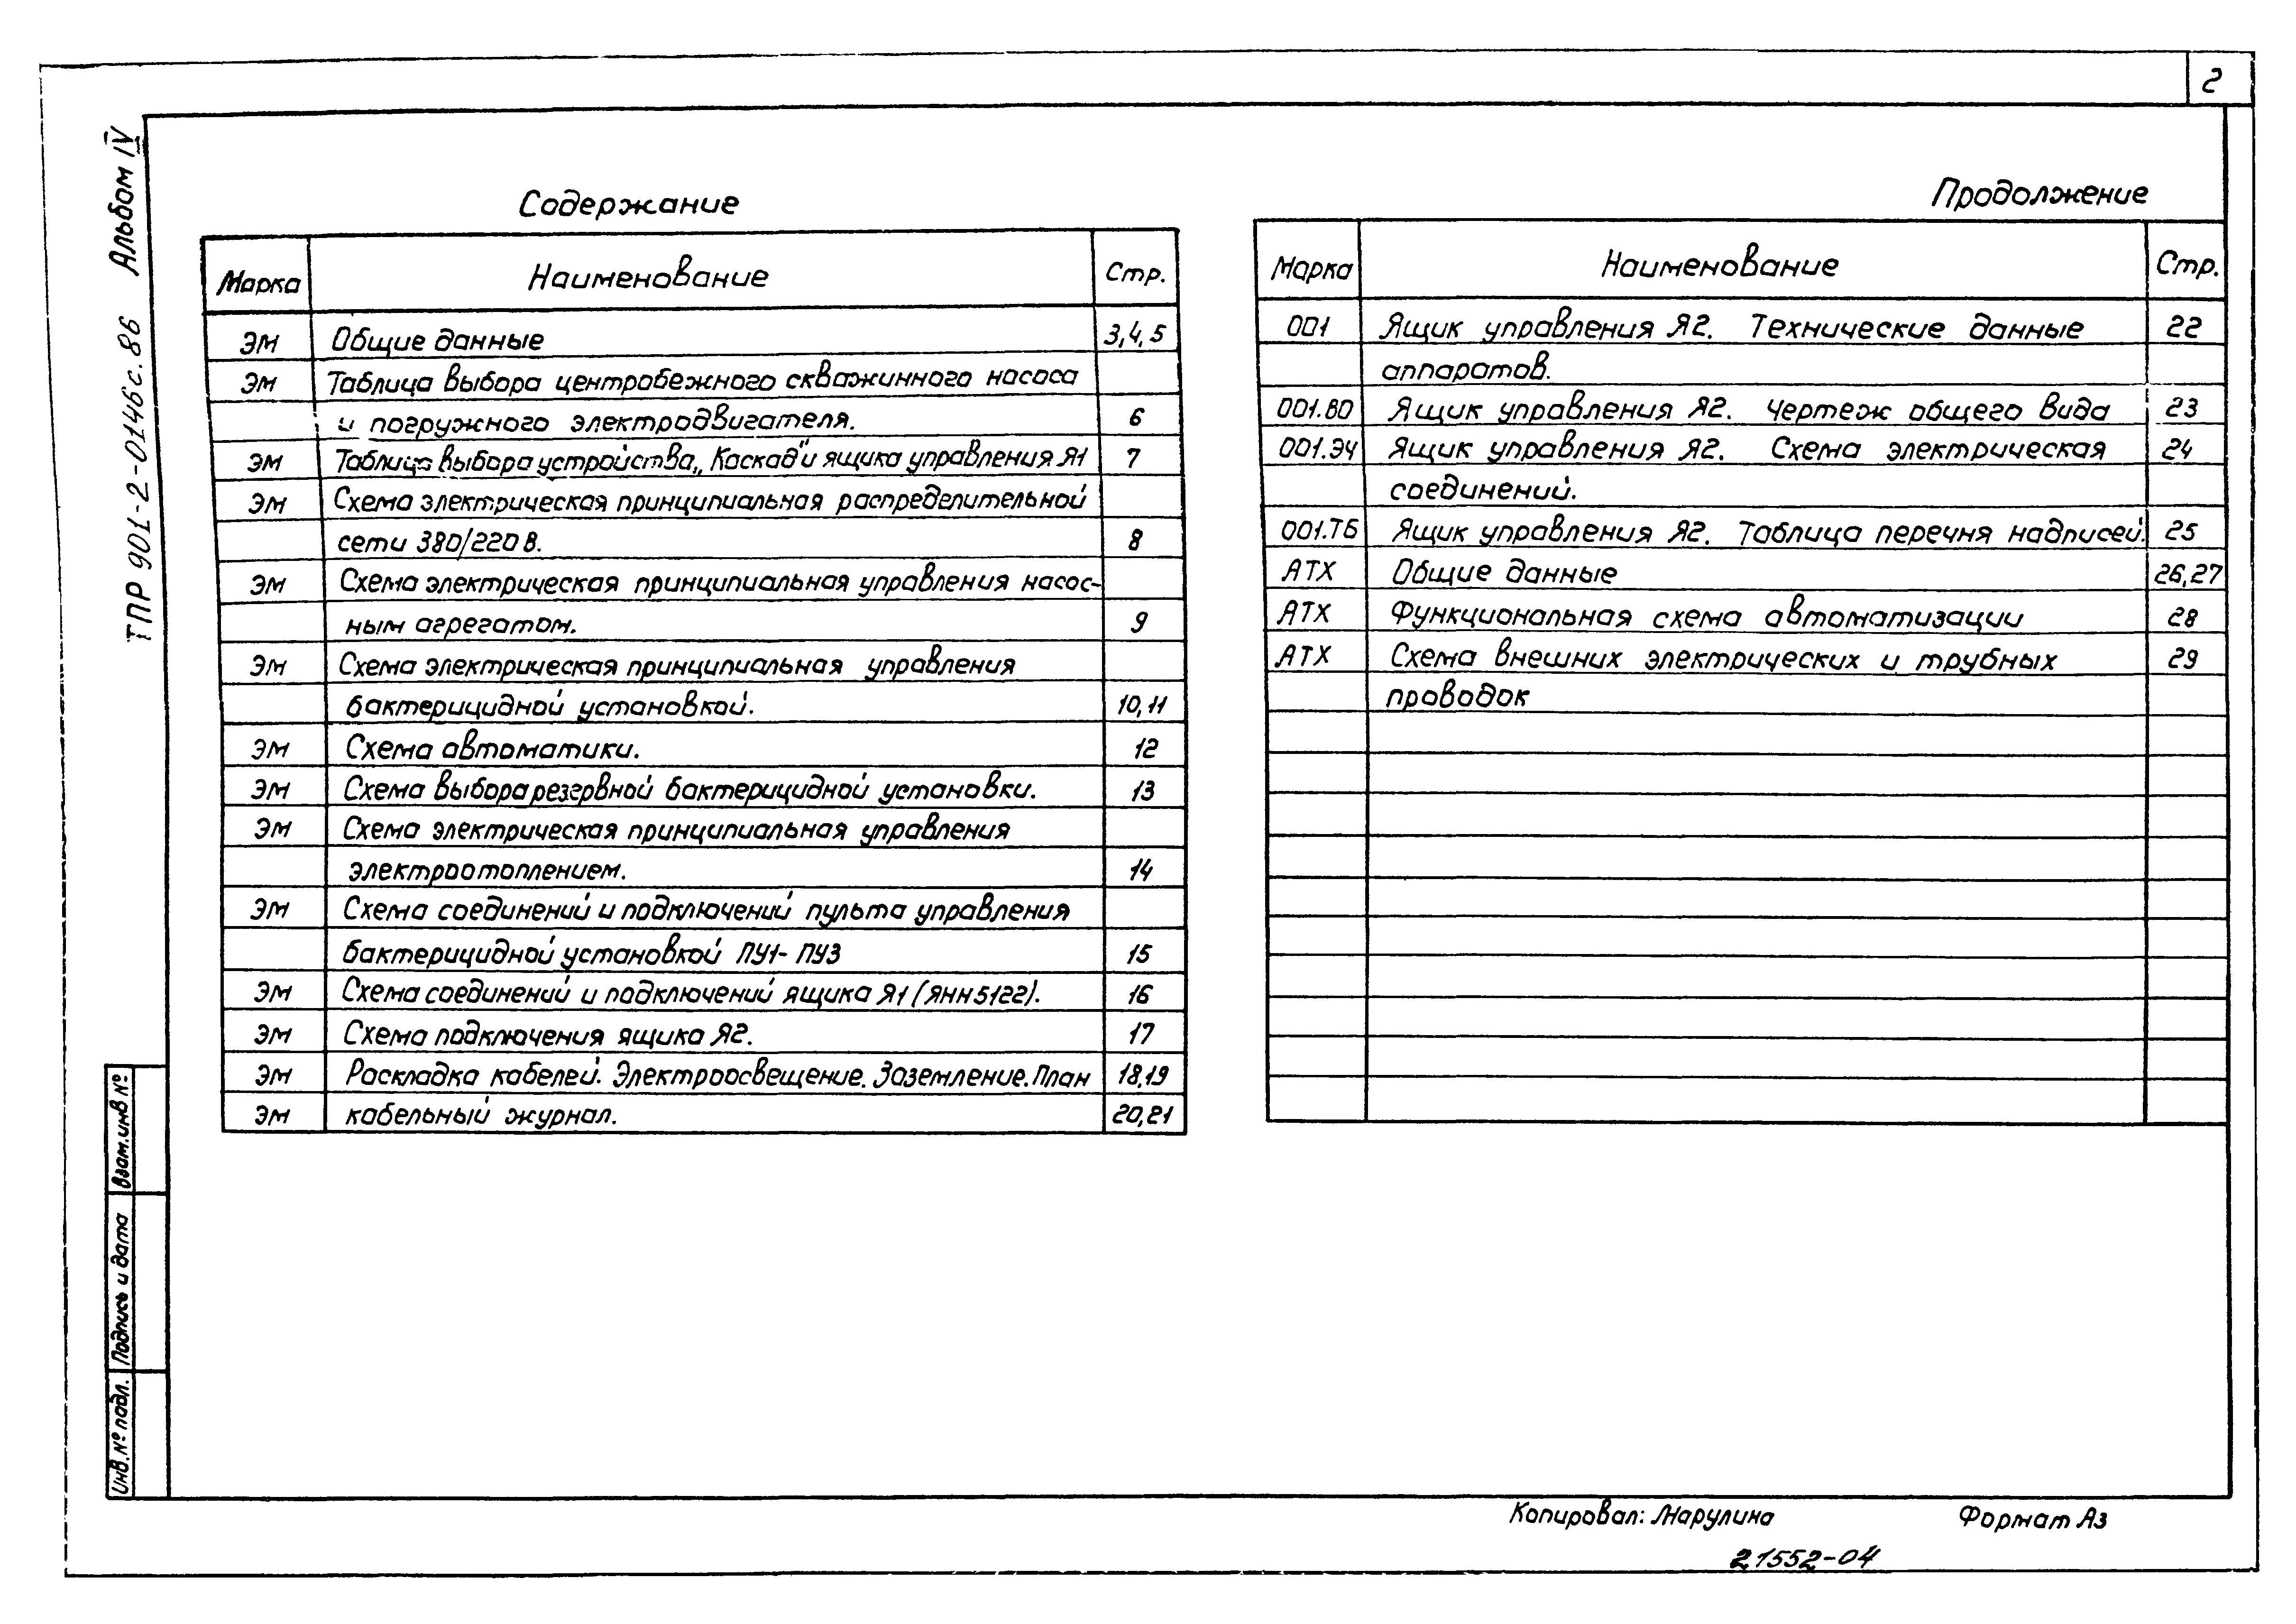 2
ТПР 901-2-0146с.86 Альбом IV
Содержание
Марка Наименование Стр.
ЭМ Общие данные 3,4,5
ЭМ Таблица выбора центробежного скважинного насоса
и погружного электродвигателя. 6
ЭМ Таблица выбора устройства „Каскад" и ящика управления Я1 7
ЭМ Схема электрическая принципиальная распределительной
сети 380/220В. 8
ЭМ Схема электрическая принципиальная управления насос-
ным агрегатом. 9
ЭМ Схема электрическая принципиальная управления
бактерицидной установкой. 10,11
ЭМ Схема автоматики. 12
ЭМ Схема выбора резервной бактерицидной установки. 13
ЭМ Схема электрическая принципиальная управления
электроотоплением. 14
ЭМ Схема соединений и подключений пульта управления
бактерицидной установкой ПУ1-ПУ3 15
ЭМ Схема соединений и подключений ящика Я1 (ЯНН5122). 16
ЭМ Схема подключения ящика Я2. 17
ЭМ Раскладка кабелей. Электроосвещение. Заземление. План 18,19
ЭМ кабельный журнал. 20,21
Продолжение
Марка Наименование Стр.
001 Ящик управления Я2. Технические данные 22
аппаратов.
001.ВО Ящик управления Я2. Чертеж общего вида 23
001.Э4 Ящик управления Я2. Схема электрическая 24
соединений.
001.ТБ Ящик управления Я2. Таблица перечня надписей. 25
АТХ Общие данные 26,27
АТХ Функциональная схема автоматизации 28
АТХ Схема внешних электрических и трубных 29
проводок
Взам.инв №
Подпись и дата
Инв.№ подл.
Копировал: Марулина Формат А3
21552-04